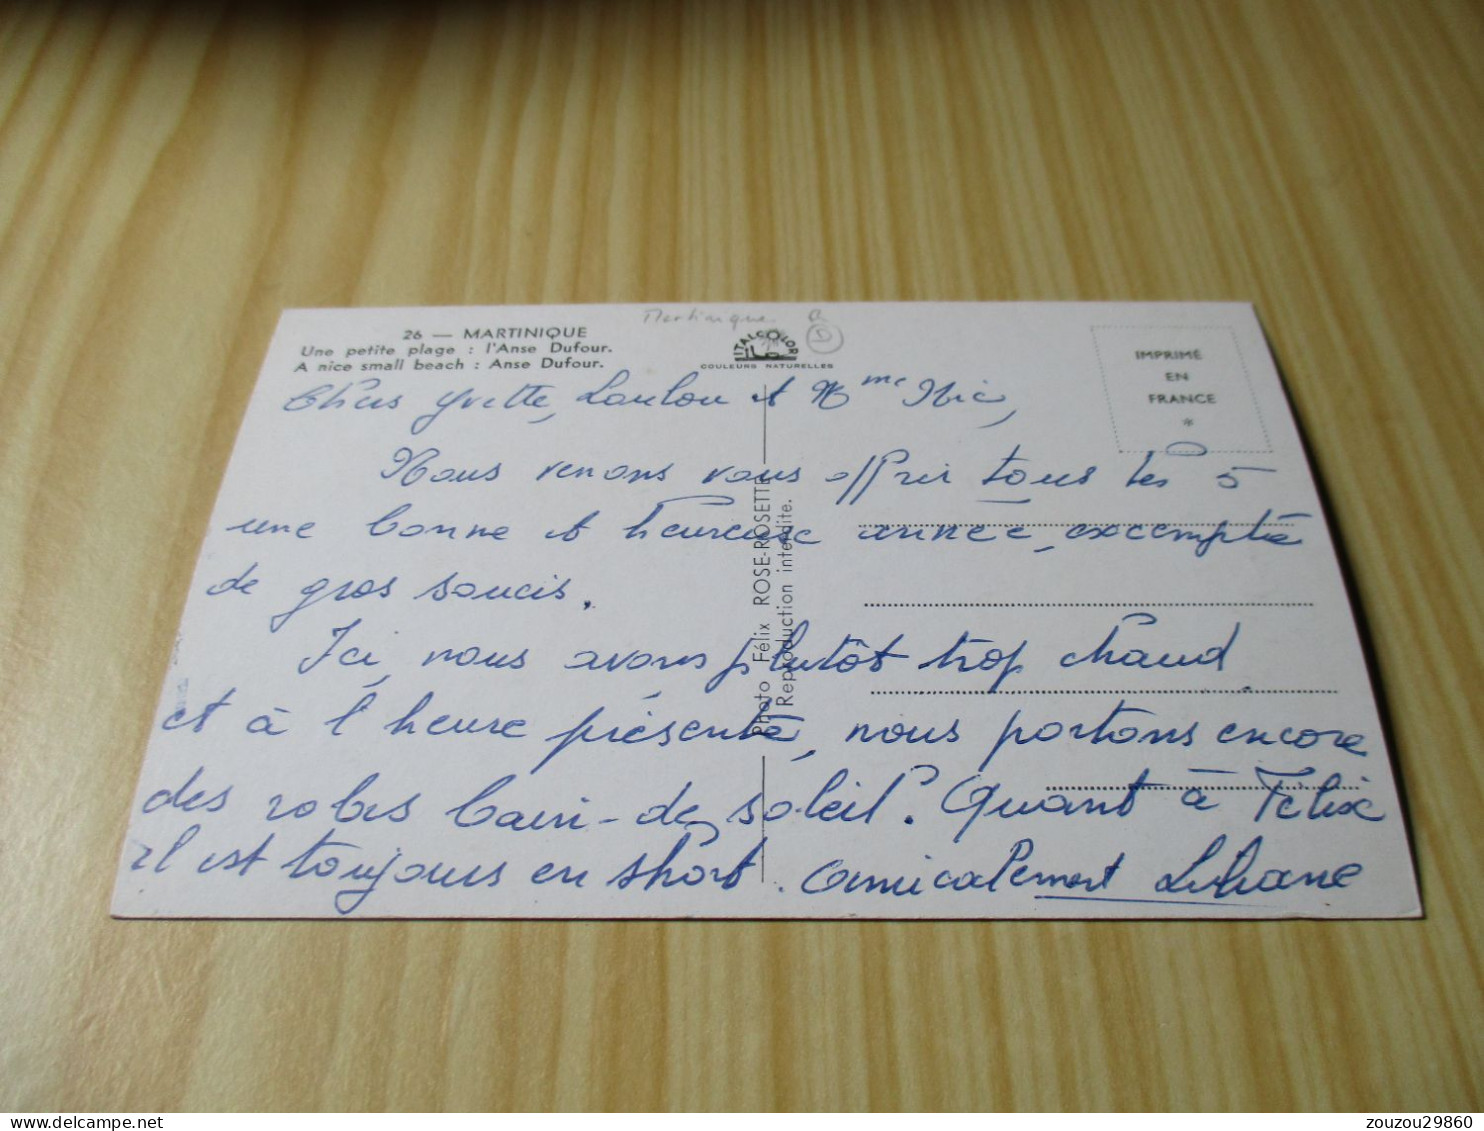 Martinique
26 — MARTINIQUE
Une petite plage : l'Anse Dufour.
A nice small beach : Anse Dufour.
ITALCOLOR
COULEURS NATURELLES
IMPRIMÉ
EN
FRANCE
*
Photo Félix ROSE-ROSETTE
Reproduction interdite.
Chers Yvette, Loulou et Mme Nic,
Nous venons vous offrir tous les 5
une bonne et heureuse année, excemptée
de gros soucis.
Ici, nous avons plutôt trop chaud
et à l'heure présente, nous portons encore
des robes bain-de-soleil. Quant à Félix
il est toujours en short. Amicalement Liliane
zouzou29860
delcampe.net